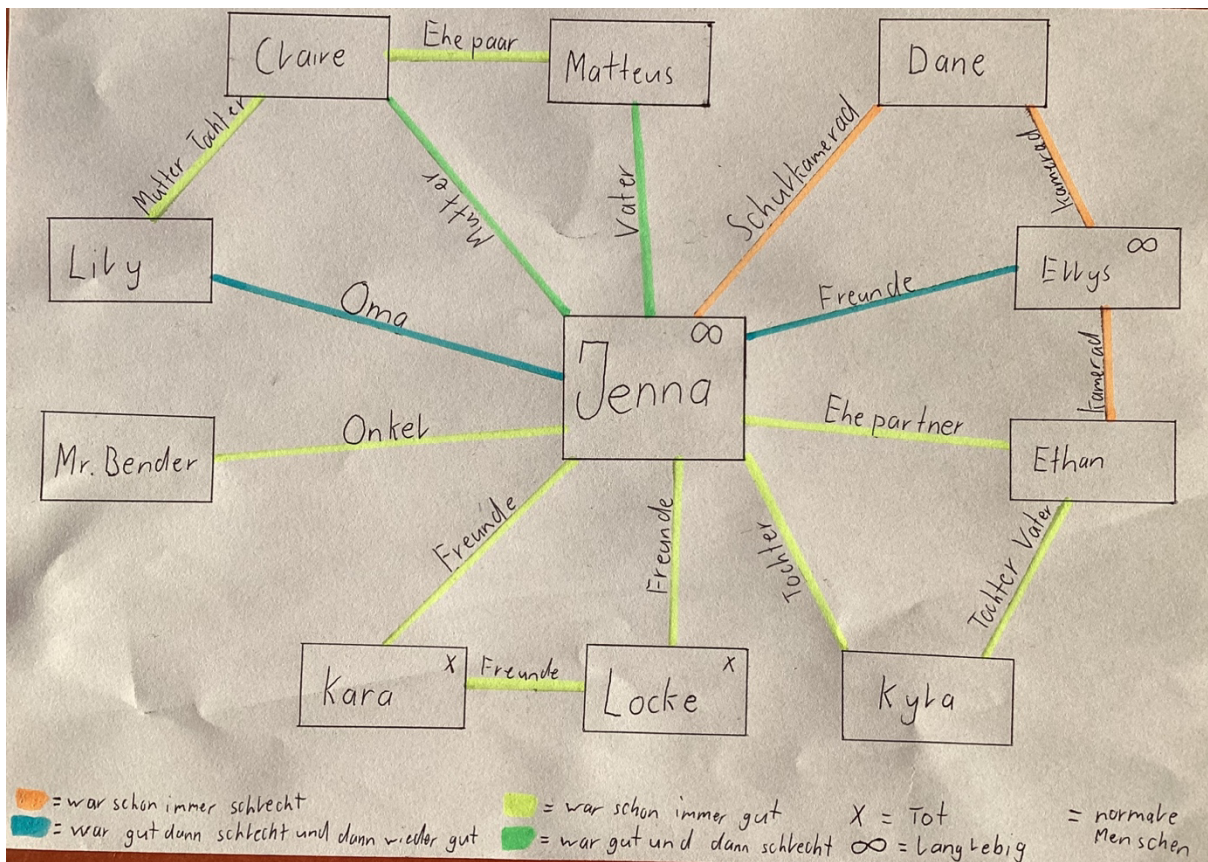 Claire
Ehepaar
Matteus
Dane
Mutter Tochter
Mutter
Vater
Schulkamerad
kamerad
Lily
Oma
Freunde
∞
Ellys
∞
Jenna
kamerad
Mr. Bender
Onkel
Ehepartner
Ethan
Freunde
Freunde
Tochter
Tochter Vater
Kara
X
Freunde
Locke
X
Kyla
= war schon immer schlecht
= war gut dann schlecht und dann wieder gut
= war schon immer gut
= war gut und dann schlecht
X = Tot
∞ = Langlebig
= normale
Menschen